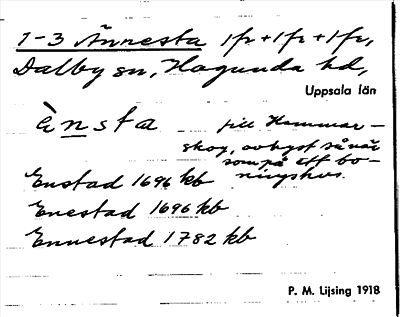 1-3 Ännesta 1fr + 1fr + 1fr,
Dalby sn, Hagunda hd,
Uppsala län
ènsta till Hammar-
skog, avhyst så när
som på ett bo-
ningshus.
Enstad 1696 kb
Enestad 1696 kb
Ennestad 1782 kb
P. M. Lijsing 1918